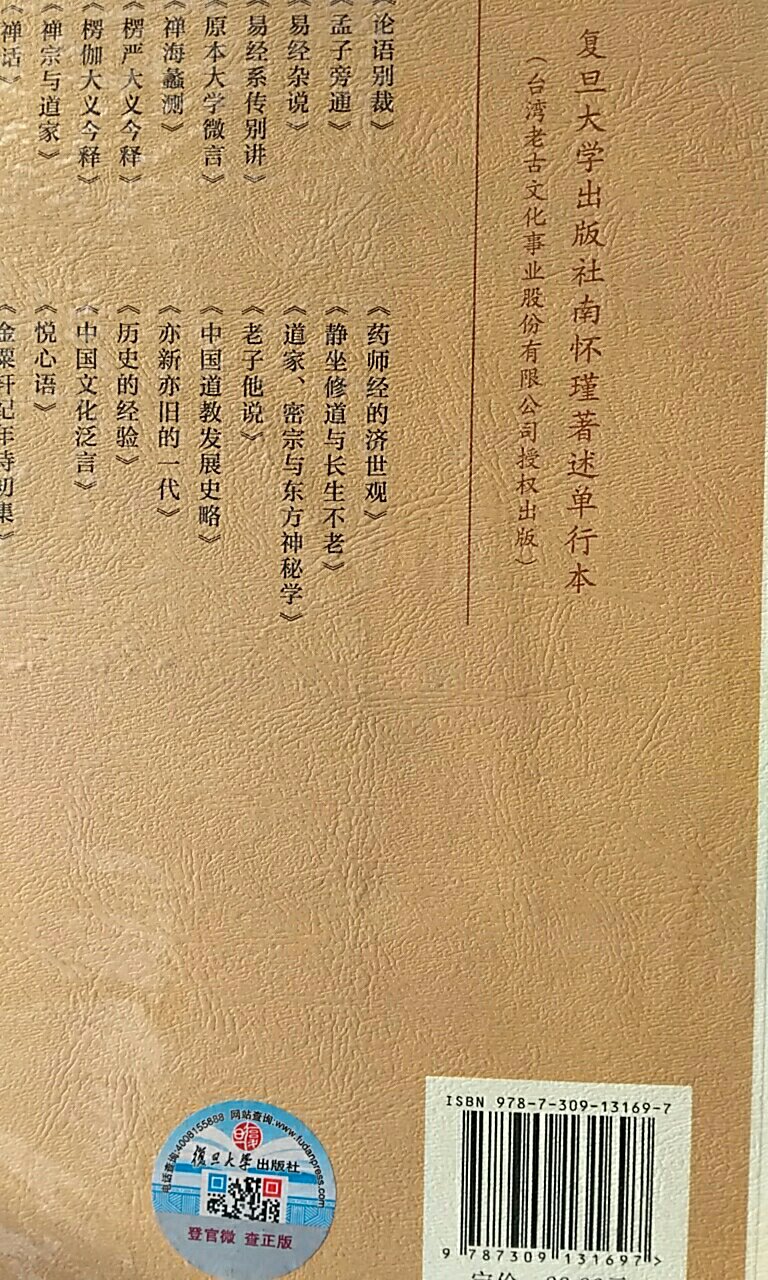 复旦大学出版社南怀瑾著述单行本
（台湾老古文化事业股份有限公司授权出版）
《论语别裁》
《孟子旁通》
《易经杂说》
《易经系传别讲》
《原本大学微言》
《禅海蠡测》
《楞严大义今释》
《楞伽大义今释》
《禅宗与道家》
《禅话》
《药师经的济世观》
《静坐修道与长生不老》
《道家、密宗与东方神秘学》
《老子他说》
《中国道教发展史略》
《亦新亦旧的一代》
《历史的经验》
《中国文化泛言》
《悦心语》
《金粟轩纪年诗初集》
电话查询:4008155888 网站查询:www.fudanpress.com
復旦大学出版社
登官微 查正版
ISBN 978-7-309-13169-7
9 787309 131697 >
定价